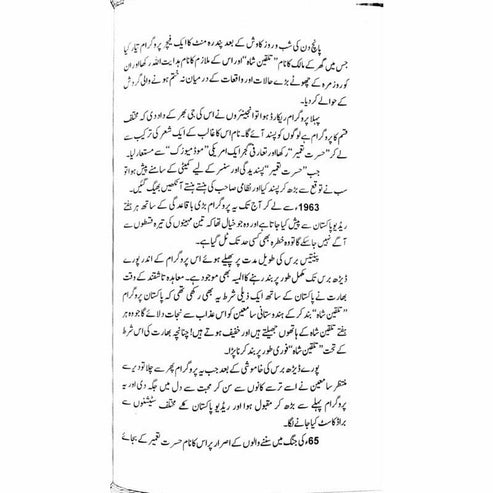 پانچ دن کی شب و روز کاوش کے بعد پندرہ منٹ کا ایک فیچر پروگرام تیار کیا
جس میں گھر کے مالک کا نام ”تلقین شاہ“ اور اس کے ملازم کا نام ہدایت اللہ رکھا اور ان
کو روز مرہ کے چھوٹے بڑے حالات اور واقعات کے درمیان نہ ختم ہونے والی گردش
کے حوالے کر دیا۔
پہلا پروگرام ریکارڈ ہوا تو انجینئروں نے اس کی جی بھر کے داد دی کہ مختلف
قسم کا پروگرام ہے لوگوں کو پسند آئے گا۔ نام اس کا غالب کے ایک شعر کی ترکیب سے
لے کر ”حسرت تعمیر“ رکھا اور تعارفی گجر ایک امریکی ”موڈ میوزک“ سے مستعار لیا۔
جب ”حسرت تعمیر“ پسندیدگی اور سنسر کے لیے کمیٹی کے سامنے پیش ہوا تو
سب نے توقع سے بڑھ کر پسند کیا اور نظامی صاحب کی ہنستے ہنستے آنکھیں بھیگ گئیں۔
1963ء سے لے کر آج تک یہ پروگرام بڑی باقاعدگی کے ساتھ ہر ہفتے
ریڈیو پاکستان سے پیش کیا جاتا ہے اور وہ جو خیال تھا کہ تین مہینوں کی تیرہ قسطوں سے
آگے نہیں جا سکے گا تو وہ خطرہ بھی کسی حد تک ٹل گیا ہے۔
پینتیس برس کی طویل مدت پر پھیلے ہوئے اس پروگرام کے اندر پورے
ڈیڑھ برس تک مکمل طور پر بند رہنے کا المیہ بھی موجود ہے۔ معاہدہ تاشقند کے وقت
بھارت نے پاکستان کے ساتھ ایک ذیلی شرط یہ بھی رکھی تھی کہ پاکستان پروگرام
”تلقین شاہ“ بند کر کے ہندوستانی سامعین کو اس عذاب سے نجات دلائے گا جو وہ ہر
ہفتے تلقین شاہ کے ہاتھوں جھیلتے ہیں اور خفیف ہوتے ہیں! چنانچہ بھارت کی اس شرط
کے تحت ”تلقین شاہ“ فوری طور پر بند کرنا پڑا۔
پورے ڈیڑھ برس کی خاموشی کے بعد جب یہ پروگرام پھر سے چلا تو دیر سے
منتظر سامعین نے اسے ترسے کانوں سے سن کر محبت سے دل میں جگہ دی اور یہ
پروگرام پہلے سے بڑھ کر مقبول ہوا اور ریڈیو پاکستان کے مختلف سٹیشنوں سے
براڈ کاسٹ کیا جانے لگا۔
65ء کی جنگ میں سننے والوں کے اصرار پر اس کا نام حسرت تعمیر کے بجائے